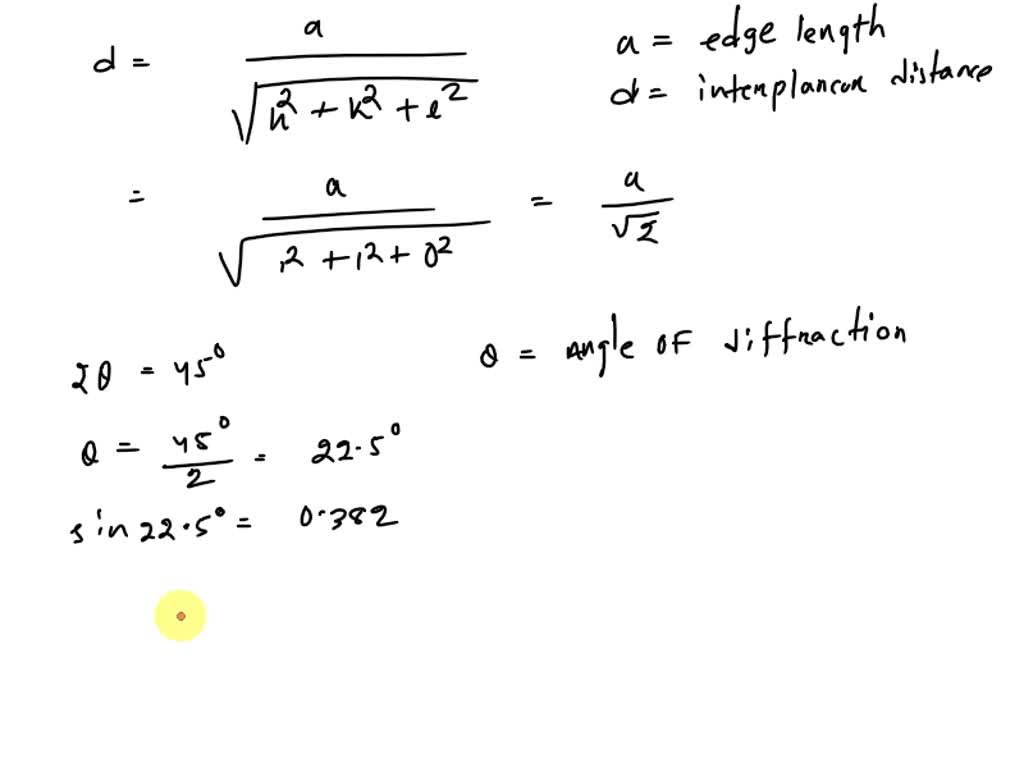 d = a / √(h² + k² + l²)
a = edge length
d = interplanar distance
= a / √(1² + 1² + 0²) = a / √2
2θ = 45°
θ = angle of diffraction
θ = 45° / 2 = 22.5°
sin 22.5° = 0.382